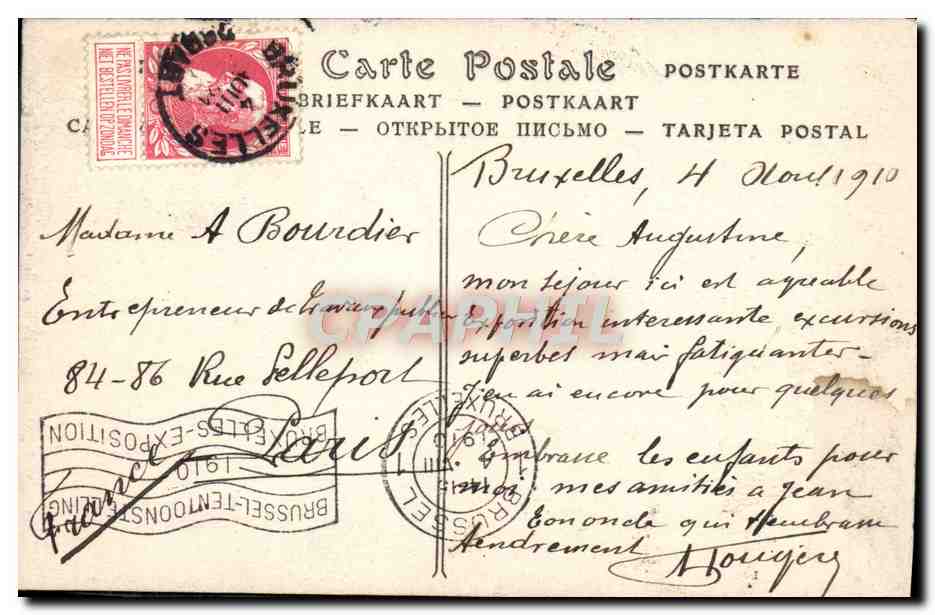 Carte Postale POSTKARTE
BRIEFKAART — POSTKAART
LE — ОТКРЫТОЕ ПИСЬМО — TARJETA POSTAL
NE PAS LIVRER LE DIMANCHE
NIET BESTELLEN OP ZONDAG
BRUXELLES
DÉPART
Madame A Bourdier
Entrepreneur de travaux publics
84-86 Rue Pelleport
Paris
France
BRUXELLES-EXPOSITION
1910
BRUSSEL-TENTOONSTELLING
BRUXELLES 1
BRUSSEL 1
VIII
Bruxelles, 4 Aout 1910
Chère Augustine,
mon séjour ici est agréable
Exposition interessante, excursions
superbes mais fatiguantes-
J'en ai encore pour quelques
jours
Embrasse les enfants pour
moi, mes amitiés a Jean
Ton oncle qui t'embrasse
tendrement
CPAPHIL